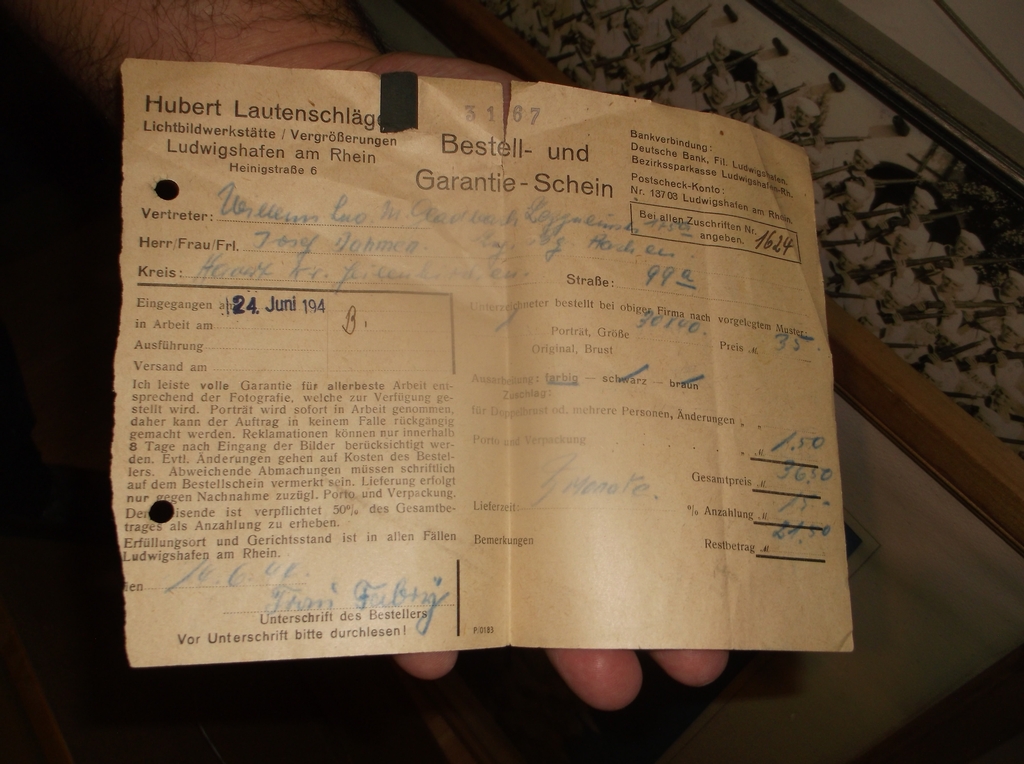 Hubert Lautenschläg
Lichtbildwerkstätte / Vergrößerungen
Ludwigshafen am Rhein
Heinigstraße 6
3167
Bestell- und
Garantie-Schein
Bankverbindung:
Deutsche Bank, Fil. Ludwigshafen.
Bezirkssparkasse Ludwigshafen-Rh.
Postscheck-Konto:
Nr. 13703 Ludwigshafen am Rhein.
Bei allen Zuschriften Nr.
1624 angeben.
Vertreter: M. Gladbach
Herr/Frau/Frl. Josef Dohmen
Kreis:
Straße: 99a
Eingegangen a 24. Juni 194
in Arbeit am B.
Ausführung
Versand am
Ich leiste volle Garantie für allerbeste Arbeit ent-
sprechend der Fotografie, welche zur Verfügung ge-
stellt wird. Porträt wird sofort in Arbeit genommen,
daher kann der Auftrag in keinem Falle rückgängig
gemacht werden. Reklamationen können nur innerhalb
8 Tage nach Eingang der Bilder berücksichtigt wer-
den. Evtl. Änderungen gehen auf Kosten des Bestel-
lers. Abweichende Abmachungen müssen schriftlich
auf dem Bestellschein vermerkt sein. Lieferung erfolgt
nur gegen Nachnahme zuzügl. Porto und Verpackung.
De isende ist verpflichtet 50% des Gesamtbe-
trages als Anzahlung zu erheben.
Erfüllungsort und Gerichtsstand ist in allen Fällen
Ludwigshafen am Rhein.
den 14.6.44.
Unterschrift des Bestellers
Vor Unterschrift bitte durchlesen!
Unterzeichneter bestellt bei obiger Firma nach vorgelegtem Muster:
Porträt, Größe 30x40. Preis M. 35.
Original, Brust
Ausarbeitung: farbig — schwarz — braun
Zuschlag:
für Doppelbrust od. mehrere Personen, Änderungen „ „
Porto und Verpackung „ M. 1.50
Gesamtpreis M. 36.50
Lieferzeit: Monate. % Anzahlung M. 15.-
Bemerkungen Restbetrag M. 21.50
P/0183